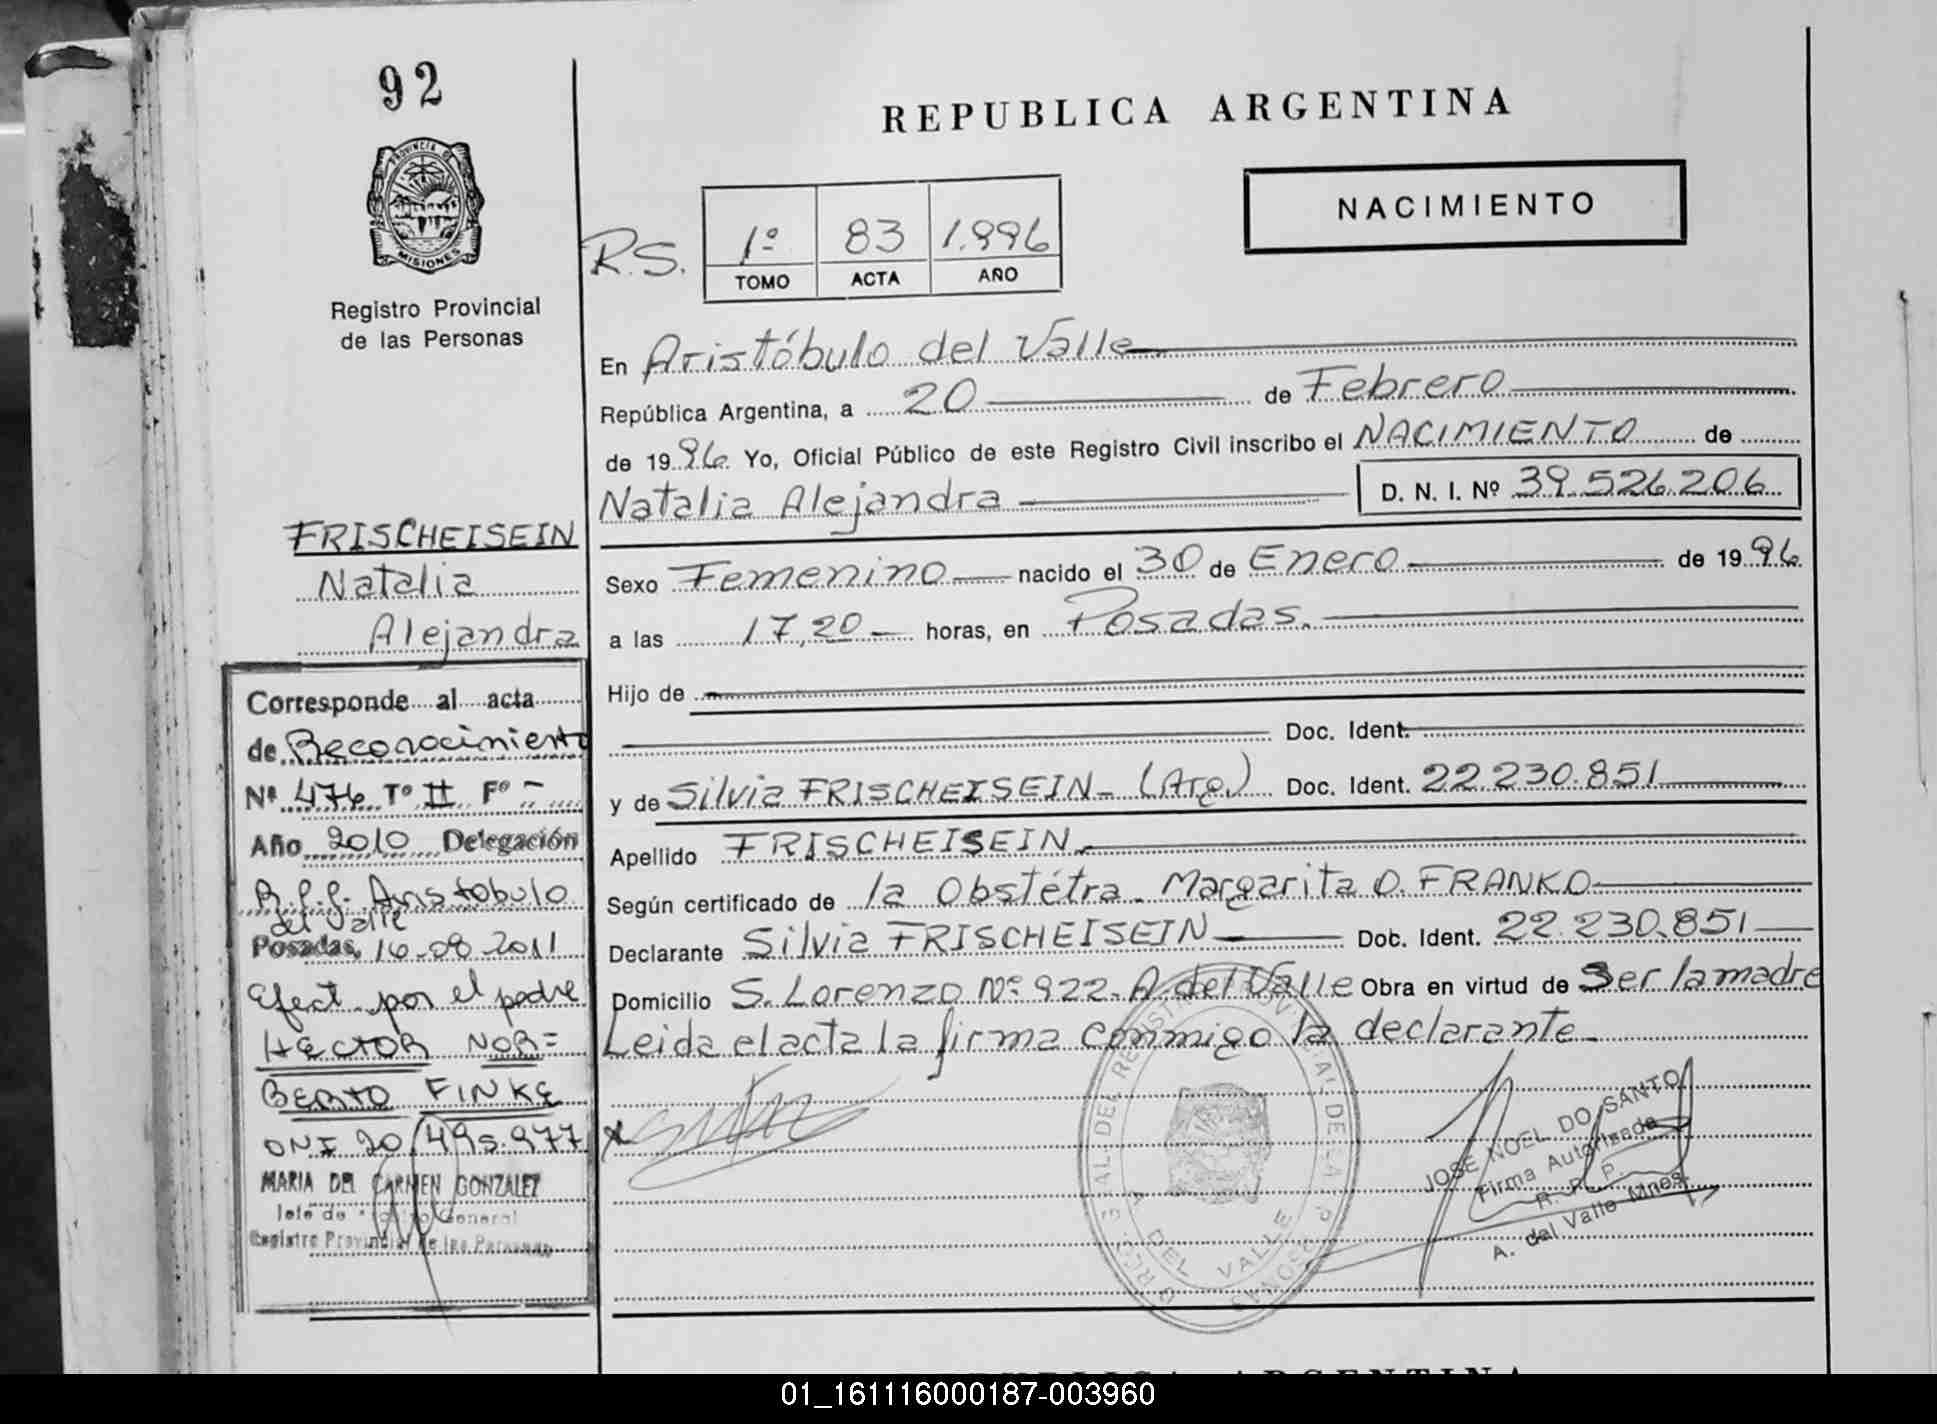 92
PROVINCIA DE
MISIONES
Registro Provincial
de las Personas
REPUBLICA ARGENTINA
NACIMIENTO
R.S.
1º 83 1.996
TOMO ACTA AÑO
En Aristóbulo del Valle
República Argentina, a 20 de Febrero
de 1996 Yo, Oficial Público de este Registro Civil inscribo el NACIMIENTO de
Natalia Alejandra D. N. I. Nº 39.526.206
Sexo Femenino nacido el 30 de Enero de 1996
a las 17,20 horas, en Posadas.
Hijo de
Doc. Ident.
y de Silvia FRISCHEISEIN - (Arg.) Doc. Ident. 22.230.851
Apellido FRISCHEISEIN
Según certificado de la Obstétra. Margarita O. FRANKO
Declarante Silvia FRISCHEISEIN Doc. Ident. 22.230.851
Domicilio S. Lorenzo Nº 922. A. del Valle Obra en virtud de Ser la madre
Leida el acta la firma conmigo la declarante.
FRISCHEISEIN
Natalia
Alejandra
Corresponde al acta
de Reconocimiento
Nº 476 Tº II Fº -
Año 2010 Delegación
Aristobulo
del Valle
Posadas, 16-08-2011
Efect. por el padre
HECTOR NOR=
BERTO FINKE
DNI 20.495.977
MARIA DEL CARMEN GONZALEZ
Jefe de General
Registro Provincial de las Personas
x
DEL VALLE
JOSE NOEL DO SANTO
Firma Autorizada
R. P. P.
A. del Valle Mnes.
REPUBLICA ARGENTINA
01_161116000187-003960